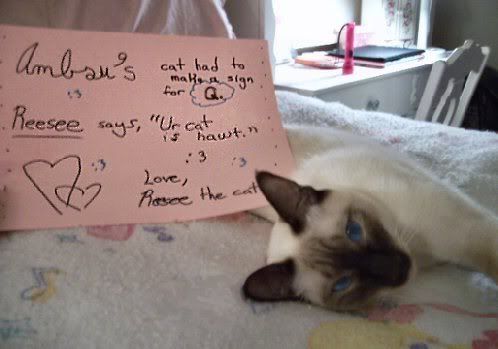 Ambau's cat had to
make a sign
for Q.
:3
Reesee says, "Ur cat
is hawt."
:3 :3
:3
Love,
Reesee the cat